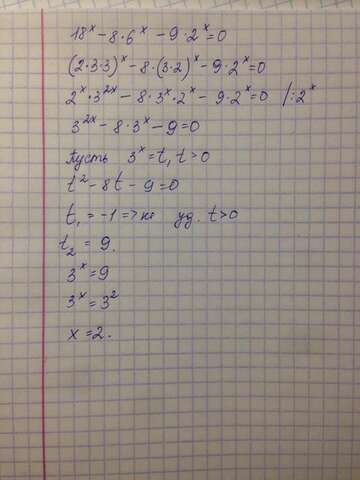 18ˣ - 8·6ˣ - 9·2ˣ = 0
(2·3·3)ˣ - 8·(3·2)ˣ - 9·2ˣ = 0
2ˣ·3²ˣ - 8·3ˣ·2ˣ - 9·2ˣ = 0 /:2ˣ
3²ˣ - 8·3ˣ - 9 = 0
Пусть 3ˣ = t, t > 0
t² - 8t - 9 = 0
t₁ = -1 => не уд. t > 0
t₂ = 9.
3ˣ = 9
3ˣ = 3²
x = 2.